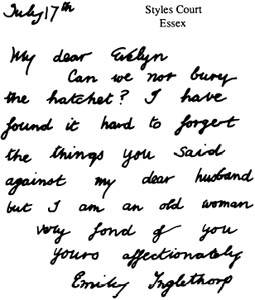 July 17th
Styles Court
Essex
My dear Evelyn
Can we not bury
the hatchet? I have
found it hard to forgert
the things you said
against my dear husband
but I am an old woman
very fond of you
yours affectionately
Emily Inglethorp